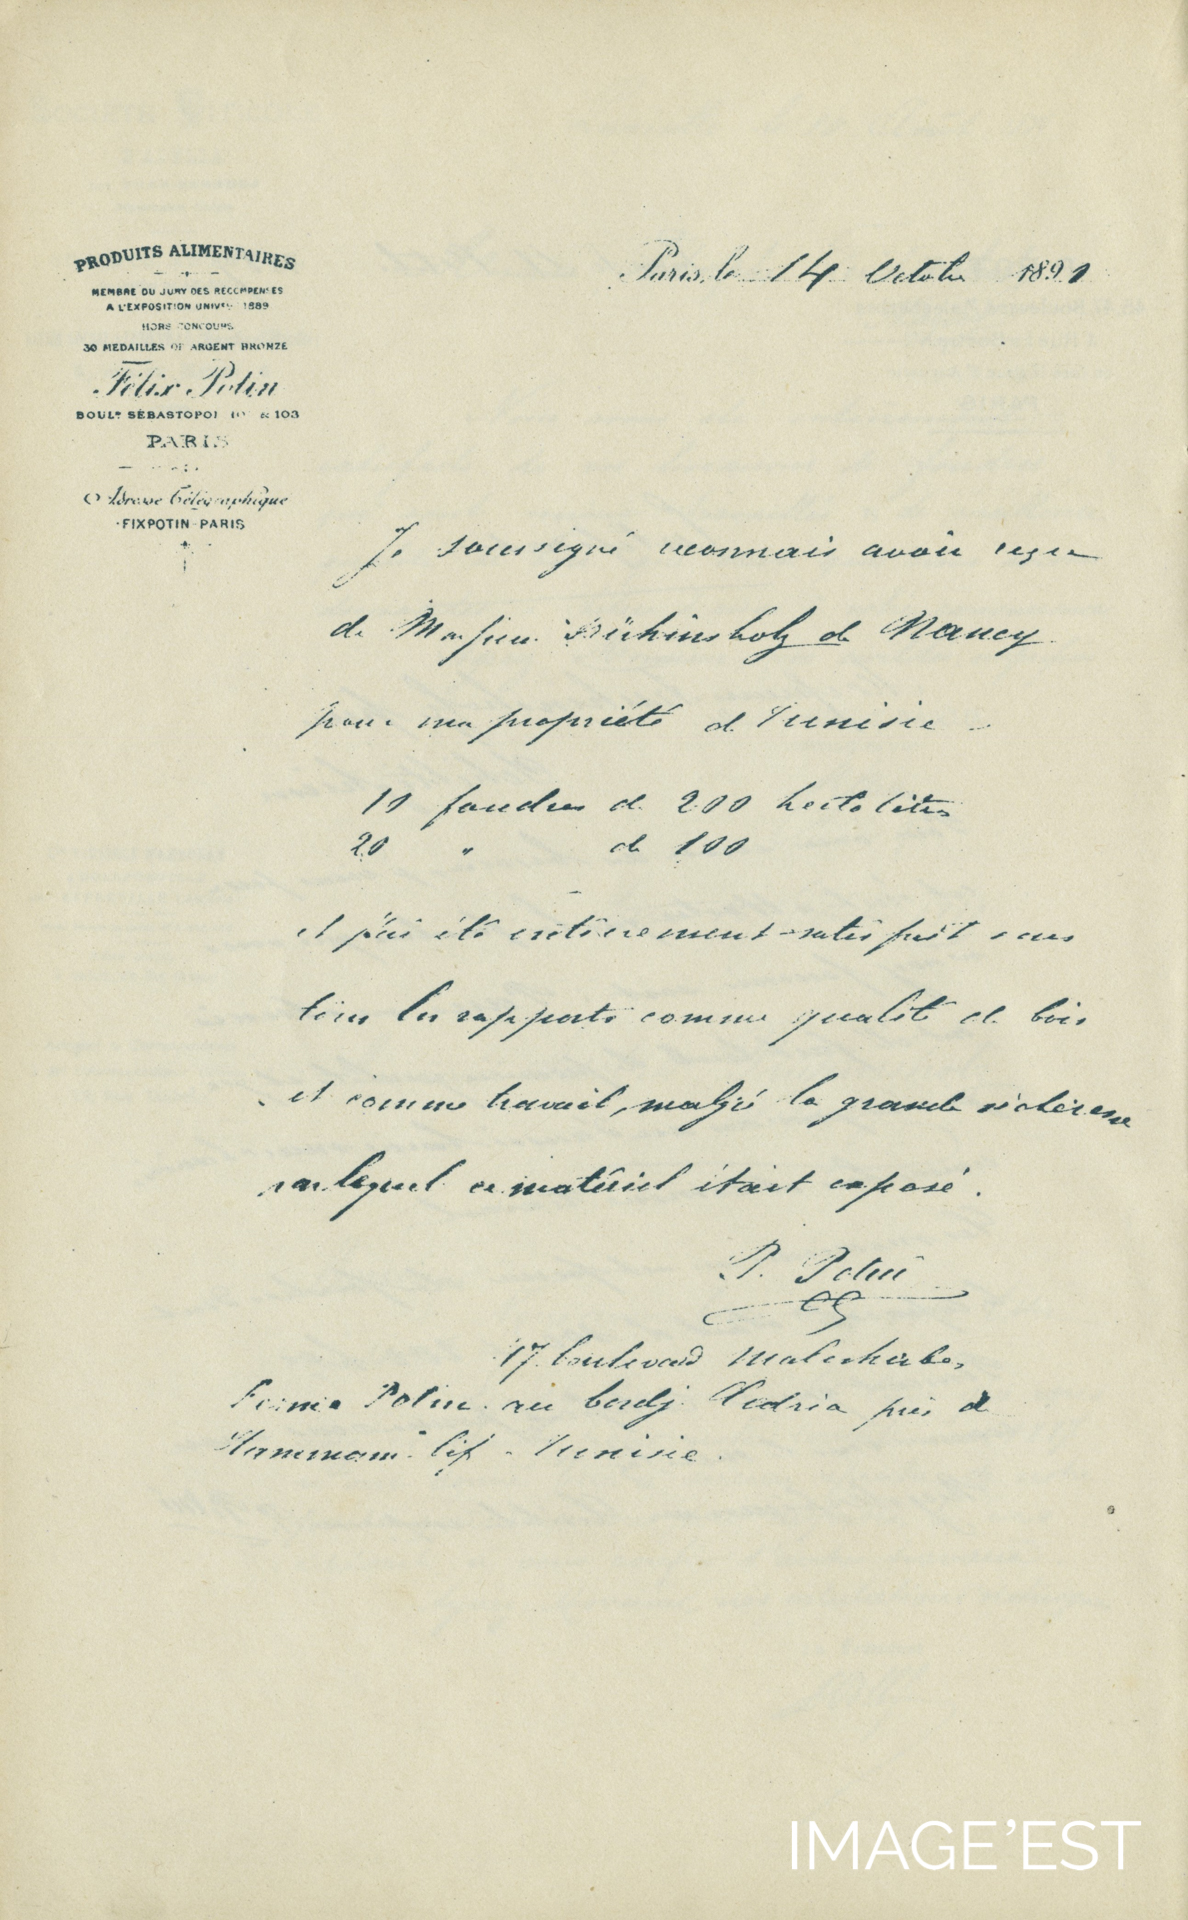 PRODUITS ALIMENTAIRES
MEMBRE DU JURY DES RECOMPENSES
A L'EXPOSITION UNIV 1889
HORS CONCOURS
30 MEDAILLES OR ARGENT BRONZE
Félix Potin
BOULD SÉBASTOPOL & 103
PARIS
Adresse Télégraphique
FIXPOTIN-PARIS
Paris, le 14 Octobre 1891
Je soussigné reconnais avoir reçu
de Monsieur Frühinsholz de Nancy
pour ma propriété de Tunisie -
10 foudres de 200 hectolitres
20 " de 100
et j'ai été entièrement satisfait sous
tous les rapports comme qualité de bois
et comme travail, malgré la grande sécheresse
lequel ce matériel était exposé.
P. Potin
17 boulevard Malesherbes,
Ferme Potin au bordj Cedria près de
Hammam-lif - Tunisie.
IMAGE'EST